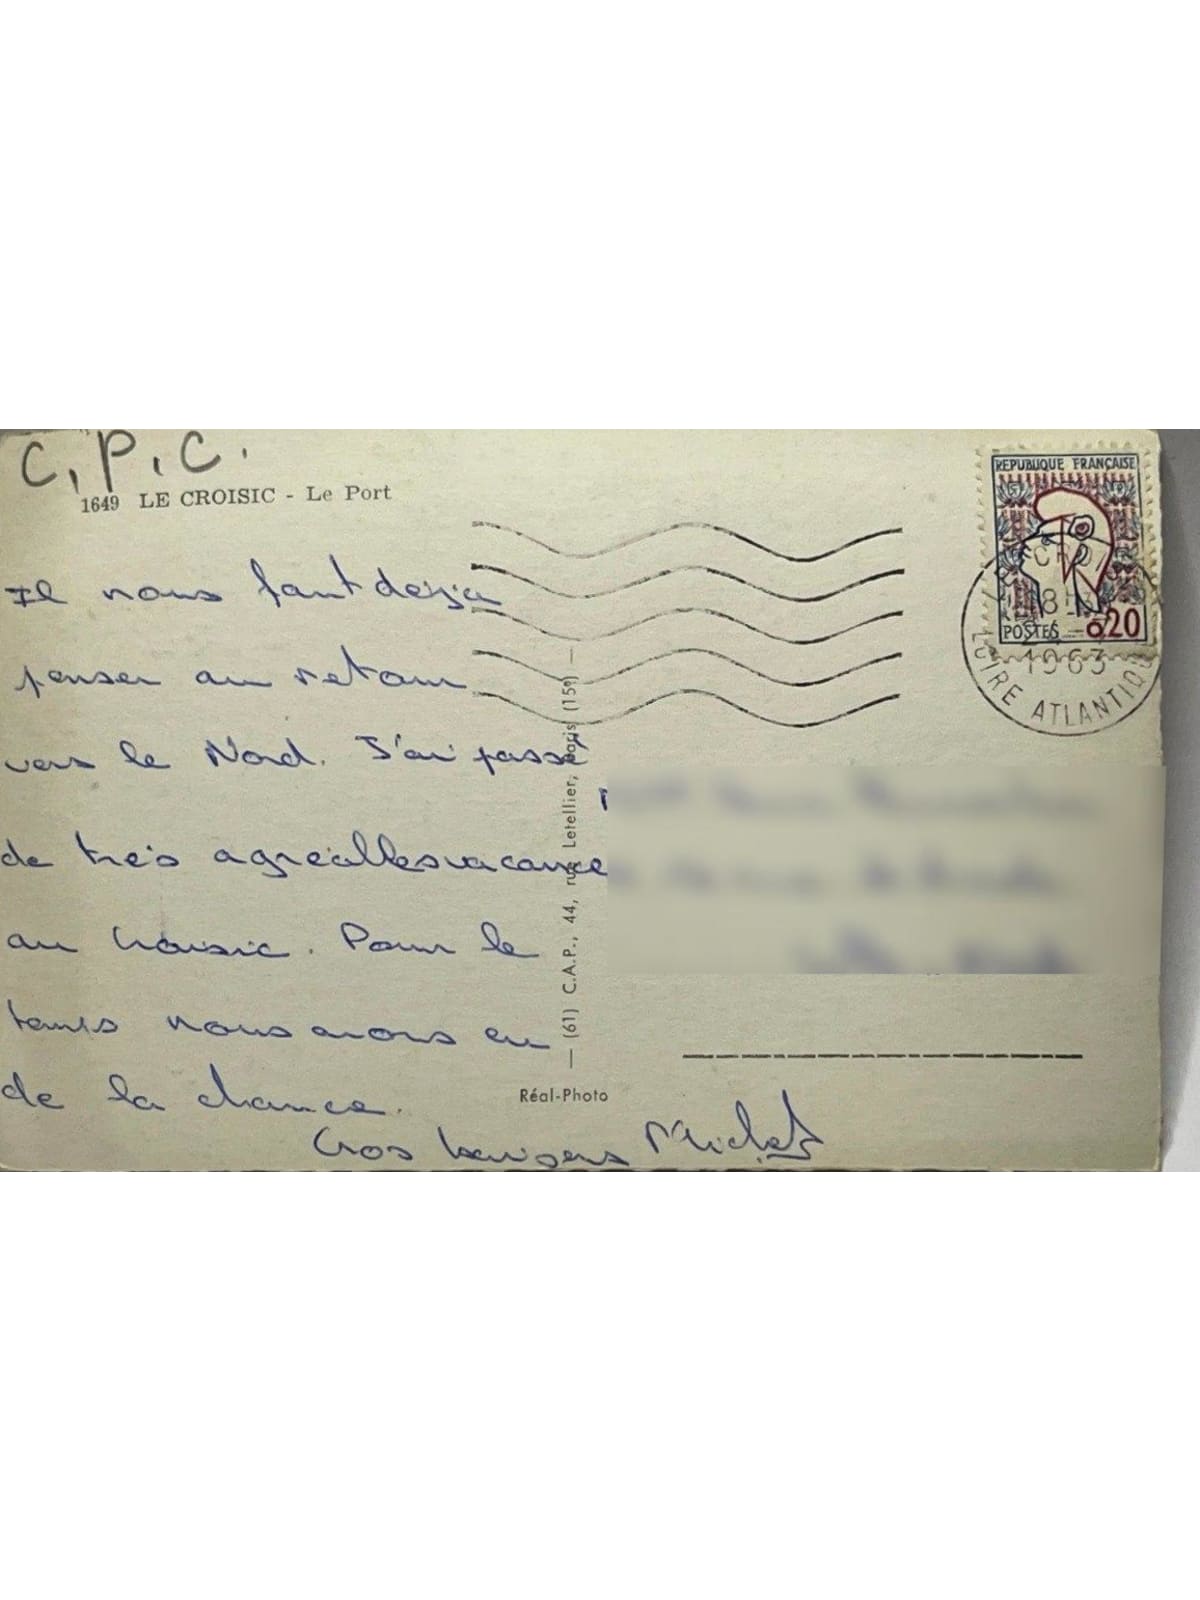 C.P.C.
1649 LE CROISIC - Le Port
REPUBLIQUE FRANÇAISE
POSTES 0,20
1963
LOIRE ATLANTIQUE
Il nous faut déjà
penser au retour
vers le Nord. J'ai passé
de très agréables vacances
au Croisic. Pour le
temps nous avons eu
de la chance.
Gros baisers Michel
— (61) C.A.P., 44, rue Letellier, Paris (15e) —
Réal-Photo